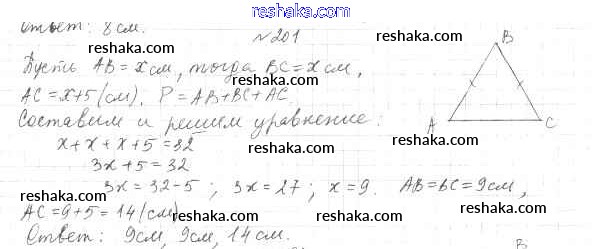 reshaka.com
ответ: 8 см.
reshaka.com
№201
reshaka.com
B
Пусть AB = x см, тогда BC = x см,
reshaka.com
AC = x+5 (см). P = AB+BC+AC.
reshaka.com
Составим и решим уравнение:
A C
x + x + x + 5 = 32
reshaka.com reshaka.com
3x + 5 = 32
reshaka.com
3x = 32-5 ; 3x = 27 ; x = 9. AB=BC=9см,
reshaka.com
AC = 9+5 = 14 (см)
reshaka.com reshaka.com
Ответ: 9см, 9см, 14 см.
reshaka.com
B